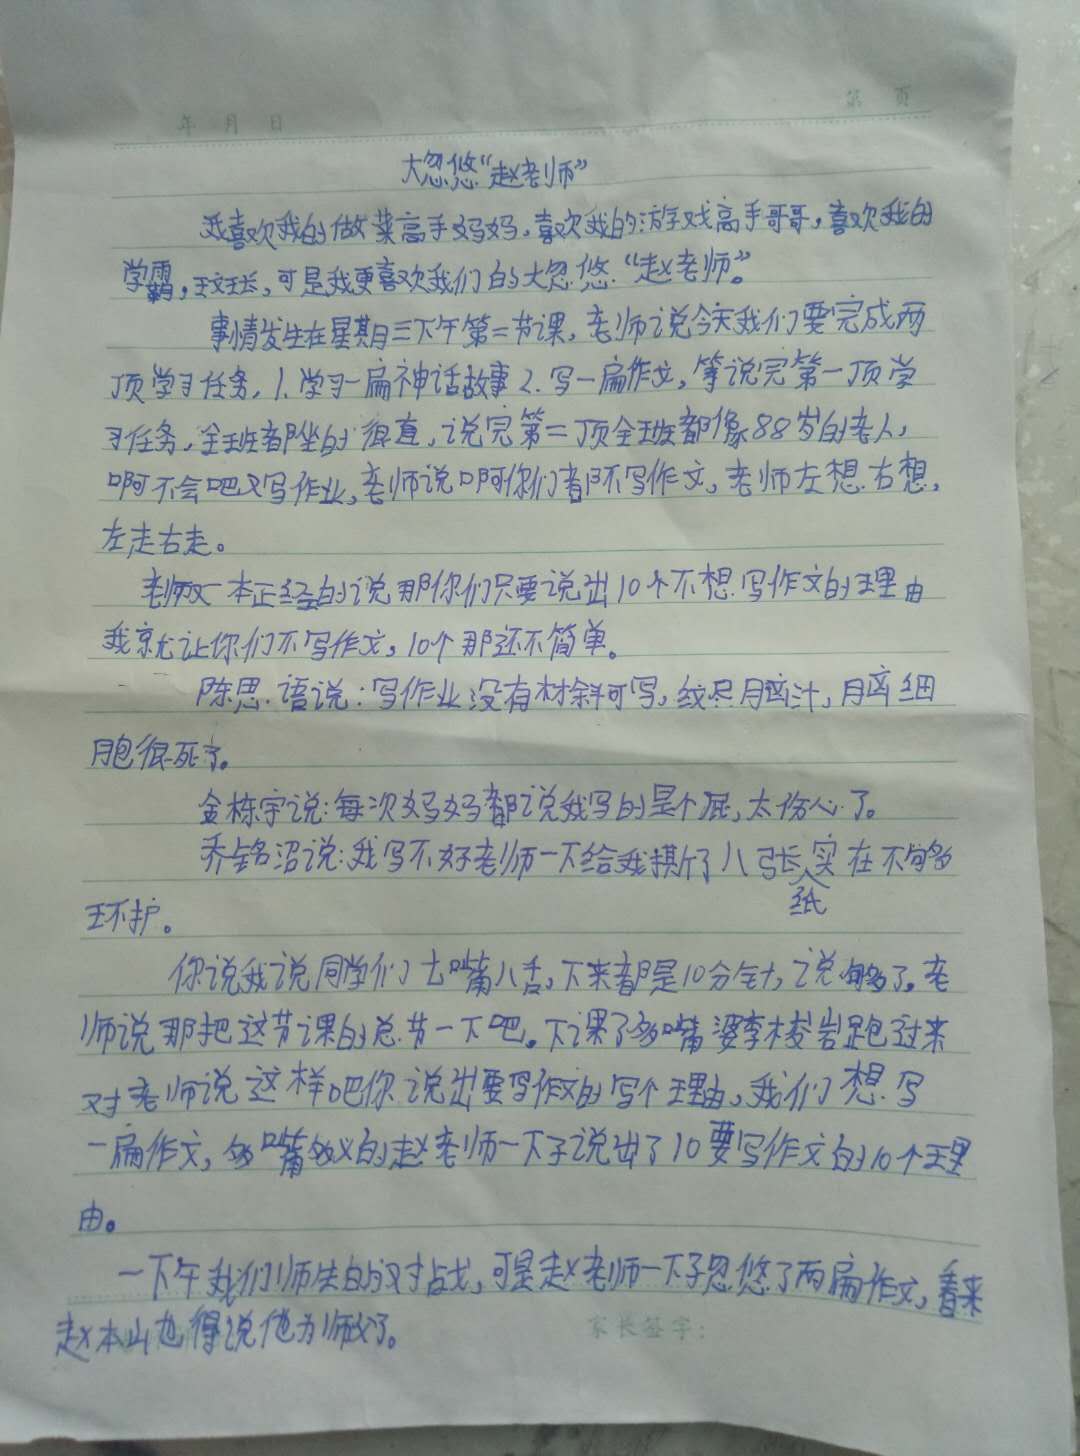 年 月 日
第 页
大忽悠“赵老师”
我喜欢我的做菜高手妈妈，喜欢我的游戏高手哥哥，喜欢我的
学霸，班长，可是我更喜欢我们的大忽悠“赵老师”。
事情发生在星期三下午第二节课，老师说今天我们要完成两
项学习任务，1.学习一扁神话故事2.写一扁作文，等说完第一项学
习任务，全班都坐的很直，说完第二项全班都像88岁的老人，
啊不会吧又写作业，老师说啊你们都不写作文，老师左想右想，
左走右走。
老师又一本正经的说那你们只要说出10个不想写作文的理由
我就让你们不写作文，10个那还不简单。
陈思语说：写作业没有材斜可写，绞尽脑汁，脑细
胞很死了。
金栋宇说：每次妈妈都说我写的是个屁，太伤心了。
乔铭沼说：我写不好老师一下给我撕了八张纸实在不够
环护。
你说我说同学们七嘴八舌，下来都是10分钟，说够了。老
师说那把这节课的总节一下吧。下课了多嘴婆李梭岩跑过来
对老师说这样吧你说出要写作文的写个理由，我们想写
一扁作文，多嘴多义的赵老师一下子说出了10要写作文的10个理
由。
一下午我们师生的对占戈，可是赵老师一下子忽悠了两扁作文，看来
赵本山也得说他为师父了。
家长签字：